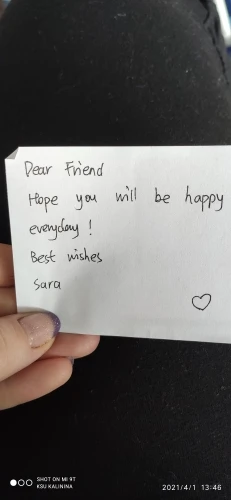 Dear Friend
Hope you will be happy
everyday !
Best wishes
Sara
SHOT ON MI 9T
KSU KALININA
2021/4/1 13:46